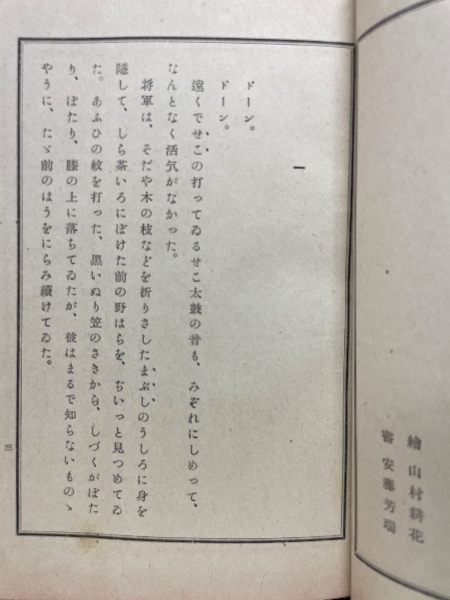 繪 山村耕花
書 安藤芳瑞
一
ドーン。
ドーン。
遠くでせこの打ってゐるせこ太鼓の音も、みぞれにしめって、
なんとなく活気がなかった。
将軍は、そだや木の枝などを折りさしたまぶしのうしろに身を
隠して、しら茶いろにぼけた前の野はらを、ぢいっと見つめてゐ
た。あふひの紋を打った、黒いぬり笠のさきから、しづくがぽた
り、ぽたり、膝の上に落ちてゐたが、彼はまるで知らないものゝ
やうに、たゞ前のはうをにらみ續けてゐた。
三